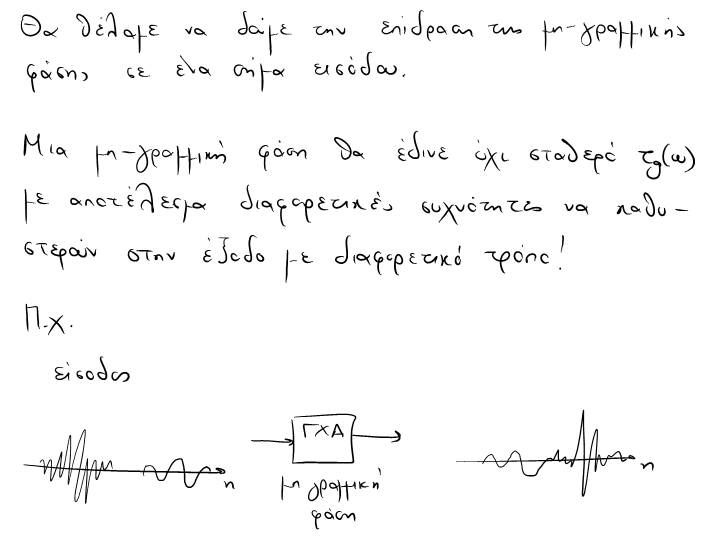 Θα θέλαμε να δούμε την επίδραση της μη-γραμμικής
φάσης σε ένα σήμα εισόδου.
Μια μη-γραμμική φάση θα έδινε όχι σταθερό τg(ω)
με αποτέλεσμα διαφορετικές συχνότητες να καθυ-
στερούν στην έξοδο με διαφορετικό τρόπο!
Π.χ.
είσοδος
ΓΧΑ
n
n
μη γραμμική
φάση